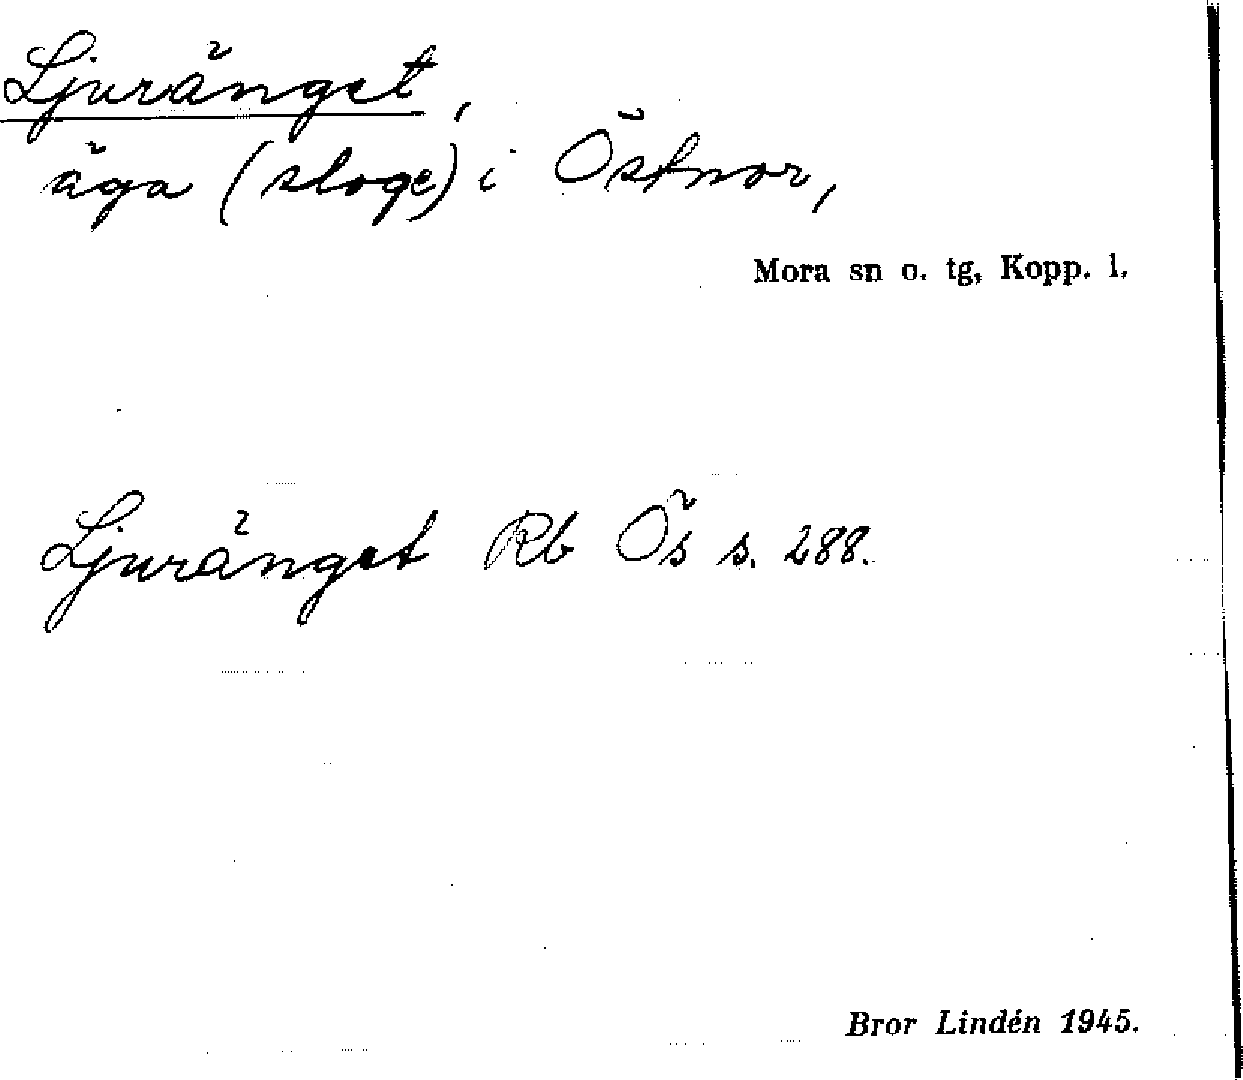 Ljuränget,
äga (sloge) i Östnor,
Mora sn o. tg, Kopp. l.
Ljuränget Rb Ös s. 288.
Bror Lindén 1945.